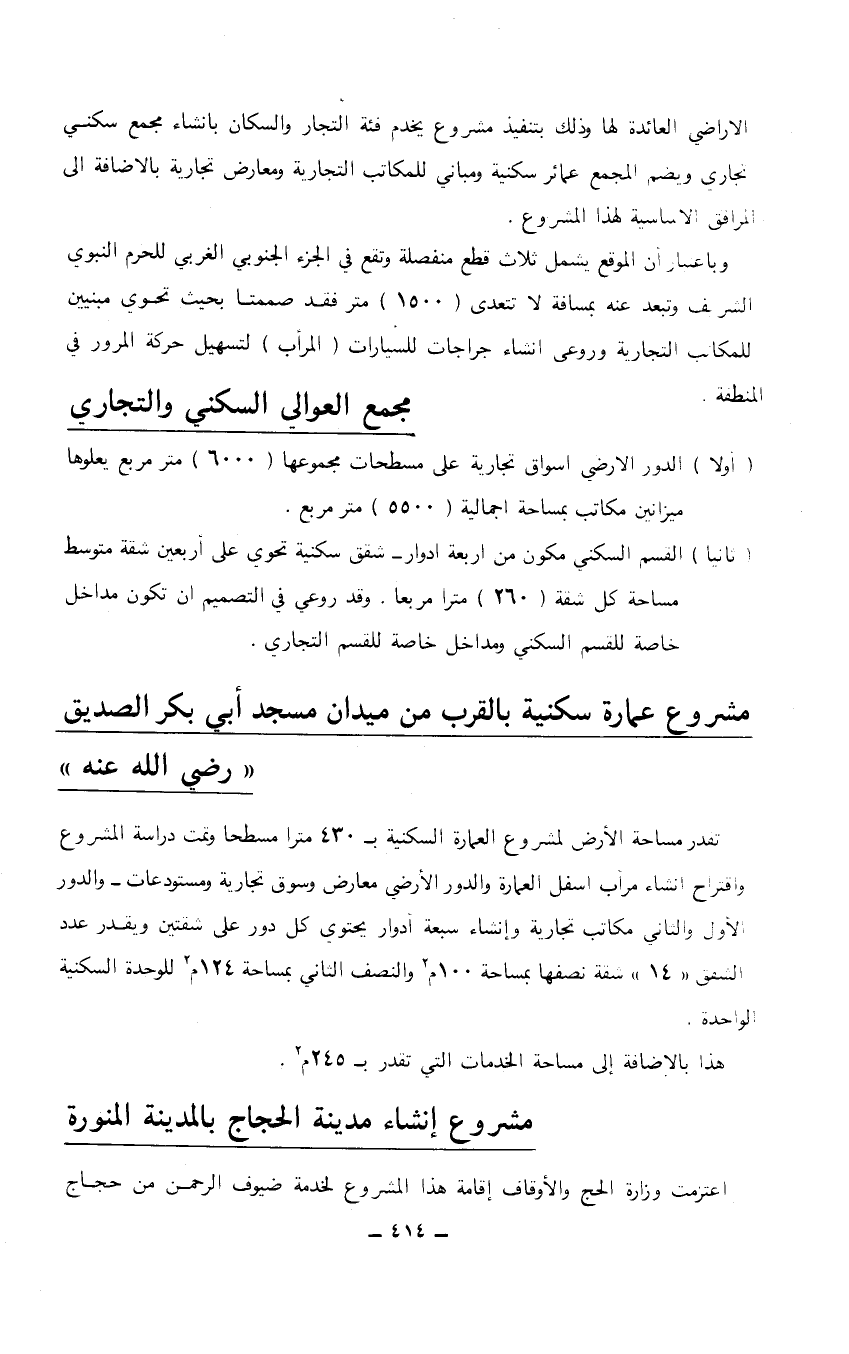 الاراضي العائدة لها وذلك بتنفيذ مشروع يخدم فئة التجار والسكان بانشاء مجمع سكني
تجاري ويضم المجمع عمائر سكنية ومباني للمكاتب التجارية ومعارض تجارية بالاضافة الى
المرافق الاساسية لهذا المشروع .
وباعتبار أن الموقع يشمل ثلاث قطع منفصلة وتقع في الجزء الجنوبي الغربي للحرم النبوي
الشريف وتبعد عنه بمسافة لا تتعدى ( ١٥٠٠ ) متر فقد صممتا بحيث تحوي مبنيين
للمكاتب التجارية وروعى انشاء جراجات للسيارات ( المرآب ) لتسهيل حركة المرور في
المنطقة .
مجمع العوالي السكني والتجاري
( أولا ) الدور الارضي اسواق تجارية على مسطحات مجموعها ( ٦٠٠٠ ) متر مربع يعلوها
ميزانين مكاتب بمساحة اجمالية ( ٥٥٠٠ ) متر مربع .
( ثانيا ) القسم السكني مكون من اربعة ادوار ـ شقق سكنية تحوي على أربعين شقة متوسط
مساحة كل شقة ( ٢٦٠ ) مترا مربعا . وقد روعي في التصميم ان تكون مداخل
خاصة للقسم السكني ومداخل خاصة للقسم التجاري .
مشروع عمارة سكنية بالقرب من ميدان مسجد أبي بكر الصديق
« رضي الله عنه »
تقدر مساحة الأرض لمشروع العمارة السكنية بـ ٤٣٠ مترا مسطحا وتمت دراسة المشروع
واقتراح انشاء مرآب اسفل العمارة والدور الأرضي معارض وسوق تجارية ومستودعات ـ والدور
الأول والثاني مكاتب تجارية وإنشاء سبعة أدوار يحتوي كل دور على شقتين ويقدر عدد
الشقق « ١٤ » شقة نصفها بمساحة ١٠٠م٢ والنصف الثاني بمساحة ١٢٤م٢ للوحدة السكنية
الواحدة .
هذا بالاضافة إلى مساحة الخدمات التي تقدر بـ ٢٤٥م٢ .
مشروع إنشاء مدينة الحجاج بالمدينة المنورة
اعتزمت وزارة الحج والأوقاف إقامة هذا المشروع لخدمة ضيوف الرحمن من حجاج
ـ ٤١٤ ـ